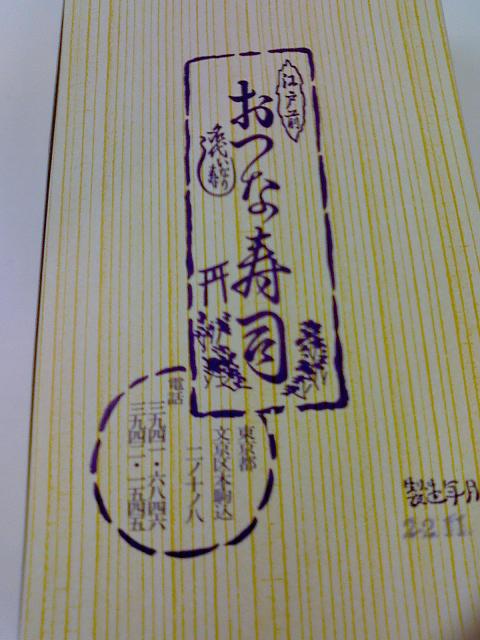 江戸前
おつな寿司
いなり
寿司
東京都
文京区本駒込
二ノ十ノ八
電話
三九四一・六八四六
三九四二・一五四五
製造年月
22.11.